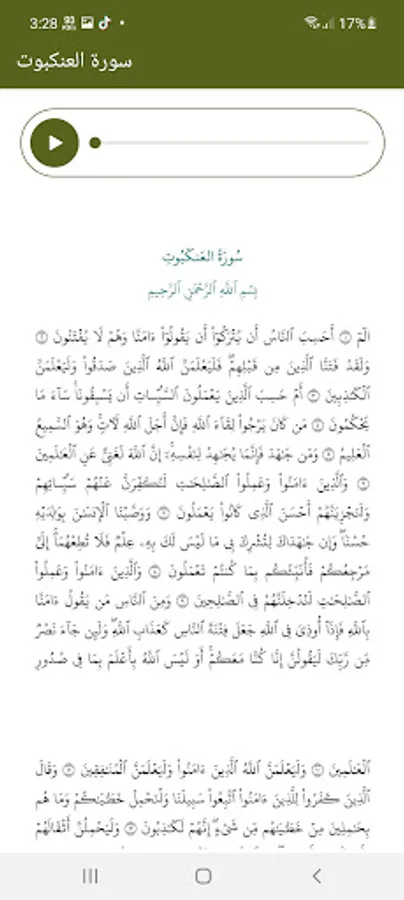 3:28
17%
سورة العنكبوت
سُورَةُ العَنكَبُوتِ
بِسْمِ ٱللَّهِ ٱلرَّحْمَٰنِ ٱلرَّحِيمِ
الٓمٓ ۝١ أَحَسِبَ ٱلنَّاسُ أَن يُتْرَكُوٓا۟ أَن يَقُولُوٓا۟ ءَامَنَّا وَهُمْ لَا يُفْتَنُونَ ۝٢
وَلَقَدْ فَتَنَّا ٱلَّذِينَ مِن قَبْلِهِمْ ۖ فَلَيَعْلَمَنَّ ٱللَّهُ ٱلَّذِينَ صَدَقُوا۟ وَلَيَعْلَمَنَّ
ٱلْكَٰذِبِينَ ۝٣ أَمْ حَسِبَ ٱلَّذِينَ يَعْمَلُونَ ٱلسَّيِّـَٔاتِ أَن يَسْبِقُونَا ۚ سَآءَ مَا
يَحْكُمُونَ ۝٤ مَن كَانَ يَرْجُوا۟ لِقَآءَ ٱللَّهِ فَإِنَّ أَجَلَ ٱللَّهِ لَـَٔاتٍ ۚ وَهُوَ ٱلسَّمِيعُ
ٱلْعَلِيمُ ۝٥ وَمَن جَٰهَدَ فَإِنَّمَا يُجَٰهِدُ لِنَفْسِهِۦٓ ۚ إِنَّ ٱللَّهَ لَغَنِىٌّ عَنِ ٱلْعَٰلَمِينَ
۝٦ وَٱلَّذِينَ ءَامَنُوا۟ وَعَمِلُوا۟ ٱلصَّٰلِحَٰتِ لَنُكَفِّرَنَّ عَنْهُمْ سَيِّـَٔاتِهِمْ
وَلَنَجْزِيَنَّهُمْ أَحْسَنَ ٱلَّذِى كَانُوا۟ يَعْمَلُونَ ۝٧ وَوَصَّيْنَا ٱلْإِنسَٰنَ بِوَٰلِدَيْهِ
حُسْنًا ۖ وَإِن جَٰهَدَاكَ لِتُشْرِكَ بِى مَا لَيْسَ لَكَ بِهِۦ عِلْمٌ فَلَا تُطِعْهُمَآ ۚ إِلَىَّ
مَرْجِعُكُمْ فَأُنَبِّئُكُم بِمَا كُنتُمْ تَعْمَلُونَ ۝٨ وَٱلَّذِينَ ءَامَنُوا۟ وَعَمِلُوا۟
ٱلصَّٰلِحَٰتِ لَنُدْخِلَنَّهُمْ فِى ٱلصَّٰلِحِينَ ۝٩ وَمِنَ ٱلنَّاسِ مَن يَقُولُ ءَامَنَّا
بِٱللَّهِ فَإِذَآ أُوذِىَ فِى ٱللَّهِ جَعَلَ فِتْنَةَ ٱلنَّاسِ كَعَذَابِ ٱللَّهِ وَلَئِن جَآءَ نَصْرٌ
مِّن رَّبِّكَ لَيَقُولُنَّ إِنَّا كُنَّا مَعَكُمْ ۚ أَوَ لَيْسَ ٱللَّهُ بِأَعْلَمَ بِمَا فِى صُدُورِ
ٱلْعَٰلَمِينَ ۝١٠ وَلَيَعْلَمَنَّ ٱللَّهُ ٱلَّذِينَ ءَامَنُوا۟ وَلَيَعْلَمَنَّ ٱلْمُنَٰفِقِينَ ۝١١ وَقَالَ
ٱلَّذِينَ كَفَرُوا۟ لِلَّذِينَ ءَامَنُوا۟ ٱتَّبِعُوا۟ سَبِيلَنَا وَلْنَحْمِلْ خَطَٰيَٰكُمْ وَمَا هُم
بِحَٰمِلِينَ مِنْ خَطَٰيَٰهُم مِّن شَىْءٍ ۖ إِنَّهُمْ لَكَٰذِبُونَ ۝١٢ وَلَيَحْمِلُنَّ أَثْقَالَهُمْ